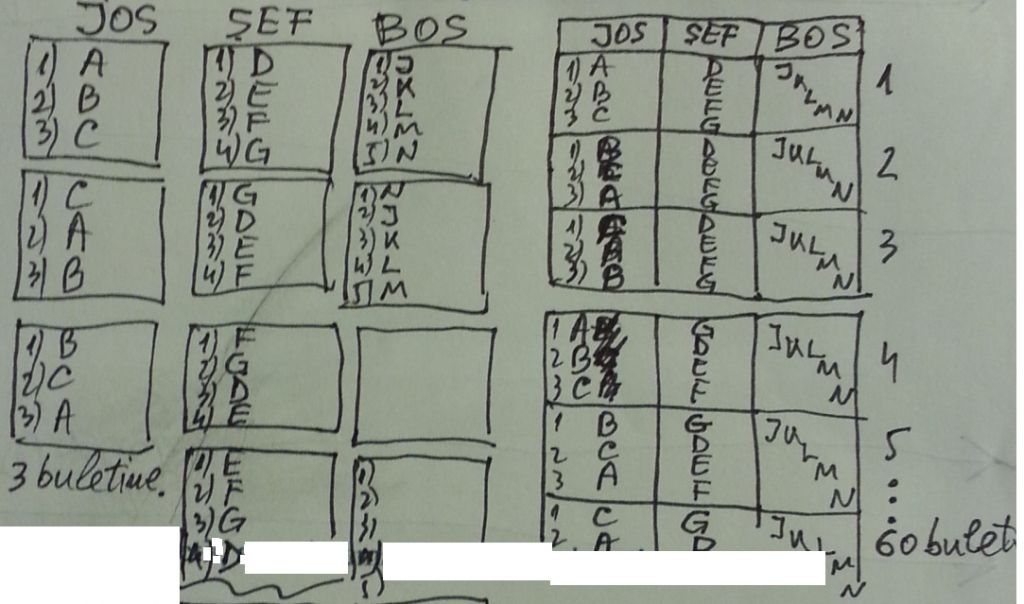 JOS ŞEF BOS
1) A
2) B
3) C
1) D
2) E
3) F
4) G
1) J
2) K
3) L
4) M
5) N
1) C
2) A
3) B
1) G
2) D
3) E
4) F
1) N
2) J
3) K
4) L
5) M
1) B
2) C
3) A
1) F
2) G
3) D
4) E
3 buletine.
1) E
2) F
3) G
4) D
1)
2)
3)
5)
JOS ŞEF BOS
1) A D J
2) B E K
3) C F L
G M
N
1
1) B D J
2) E K
3) A F L
G M
N
2
1) D J
2) E K
3) B F L
G M
N
3
1 A G J
2 B D K
3 C E L
F M
N
4
1 B G J
2 C D K
3 A E L
F M
N
5
1 C G J
2 A D K
L
M
N
60 bulet